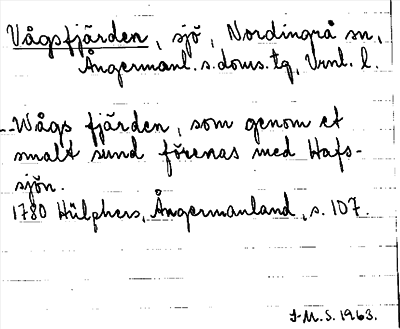 Vågsfjärden, sjö, Nordingrå sn,
Ångermanl. s. doms. tg, Vrnl. l.
--Wågs fjärden, som genom et
smalt sund förenas med Hafs-
sjön.
1780 Hülphers, Ångermanland, s. 107.
I.M.S. 1963.